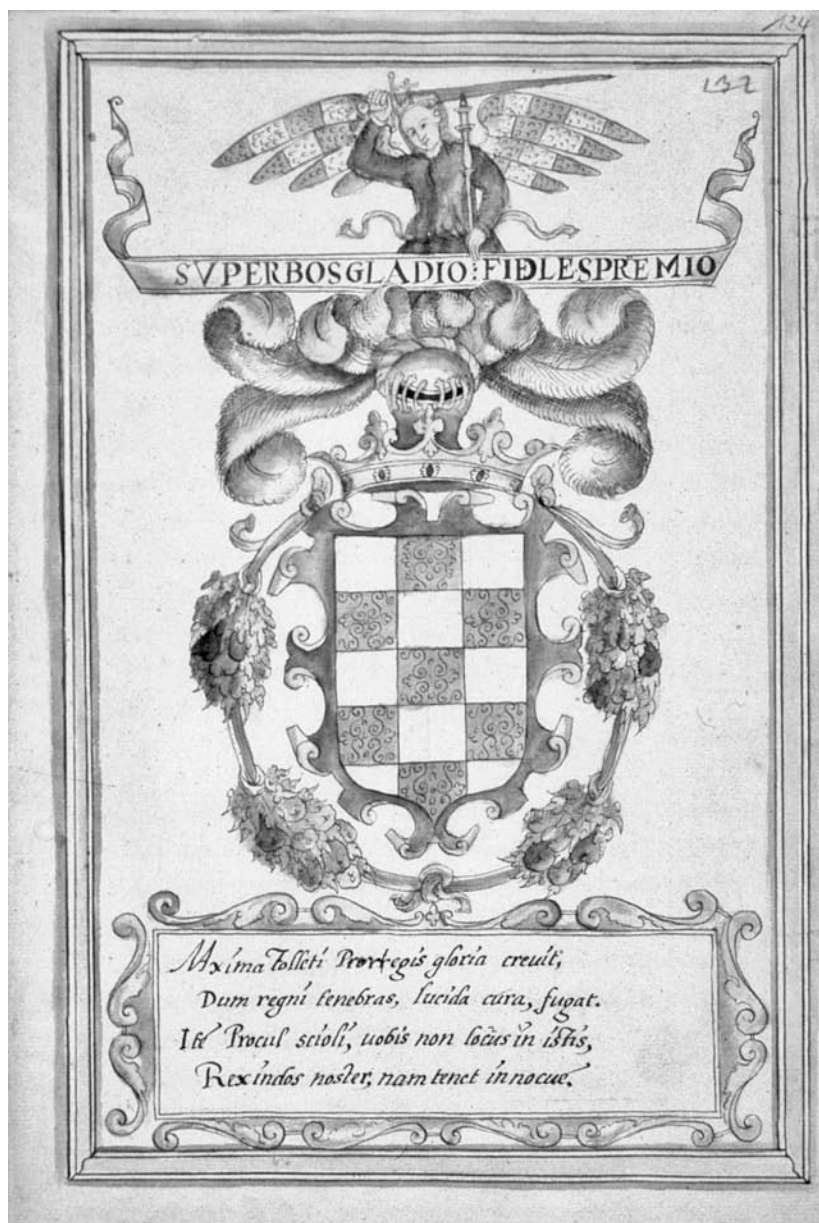 124
132
SVPERBOS GLADIO : FIDLES PREMIO
Mxíma Tolletí Prorregis gloria crevít,
Dum regní tenebras, lucida cura, fugat.
Ite Procul scíolí, uobis non locus ín istis,
Rex indos noster, nam tenet ínnocue.